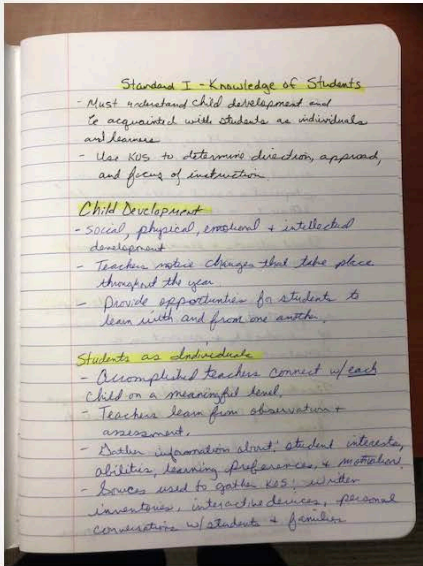 Standard I - Knowledge of Students
- Must understand child development and
be acquainted with students as individuals
and learners
- Use KOS to determine direction, approach,
and focus of instruction
Child Development
- Social, physical, emotional + intellectual
development
- Teachers notice changes that take place
throughout the year
- Provide opportunities for students to
learn with and from one another.
Students as Individuals
- Accomplished teachers connect w/ each
child on a meaningful level.
- Teachers learn from observation +
assessment.
- Gather information about: student interests,
abilities, learning preferences, + motivation
- Souces used to gather KOS: written
inventories, interactive devices, personal
conversations w/ students + families